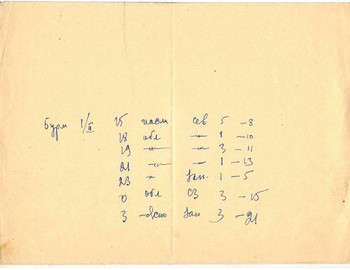 Бурм 1/II 15 пасм сев 5 -8
18 обл -"- 1 -10
19 -"- -"- 3 -11
21 -"- -"- 1 -13
23 -"- Зап. 1 -5
0 обл СЗ 3 -15
3 -ясно Зап 3 -21